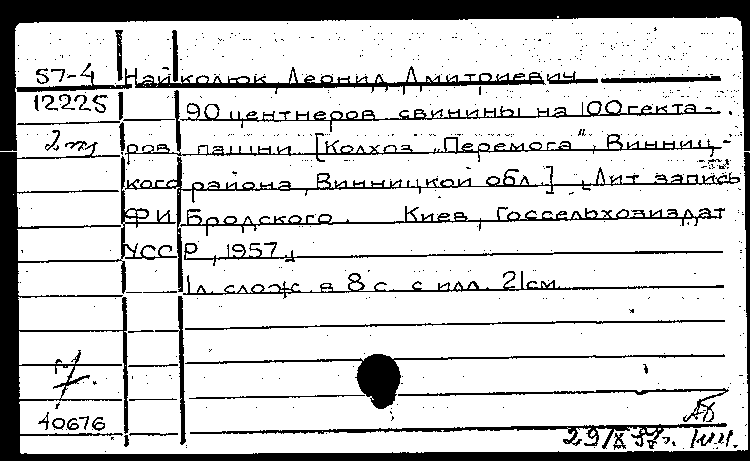 57-4 Найколюк, Леонид Дмитриевич
12225 90 центнеров свинины на 100 гекта-
ров пашни. [Колхоз „Перемога", Винниц-
кого района, Винницкой обл.] Лит запись
Ф И Бродского. Киев, Госсельхозиздат
УССР, 1957.
1 л. слож. в 8 с. с илл. 21 см
40676
29/IX 57г.